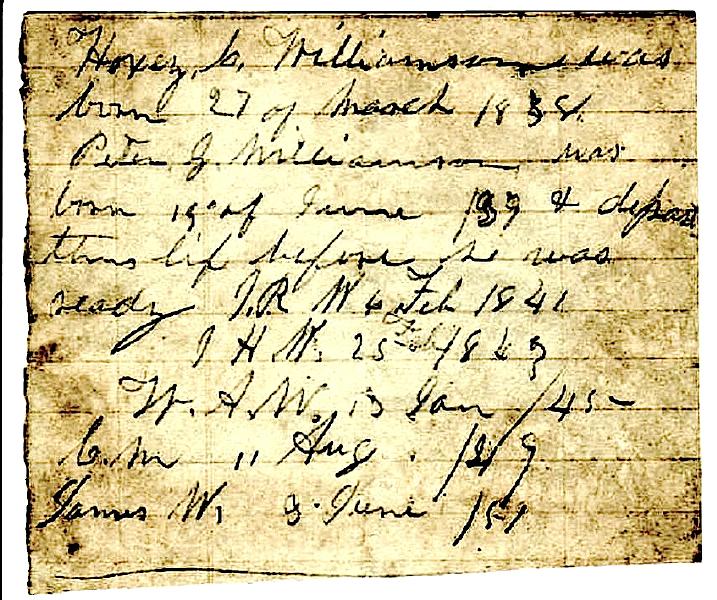 Hoxey C. Williamson was
born 27 of March 1838
Peter J. Williamson was
born 19 of June /39 & depart
this lif before he was
ready J.R W 6 Feb 1841
J H W. 25 Feb
W. A. W. 13 Jan /45
C. M 11 Aug.
James W. 3 June /51